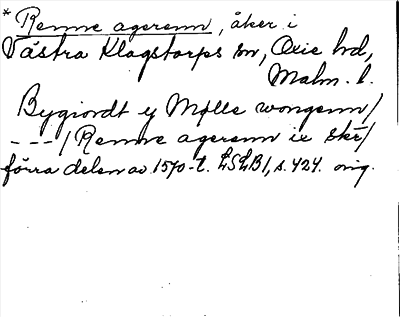 * Remne agerenn, åker i
Västra Klagstorps sn, Oxie hd,
Malm. l.
Bygiordt y Mølle wongenn/
---/Remne agerenn ix skr/
förra delen av 1570-t. LSLB1, s. 424. orig.